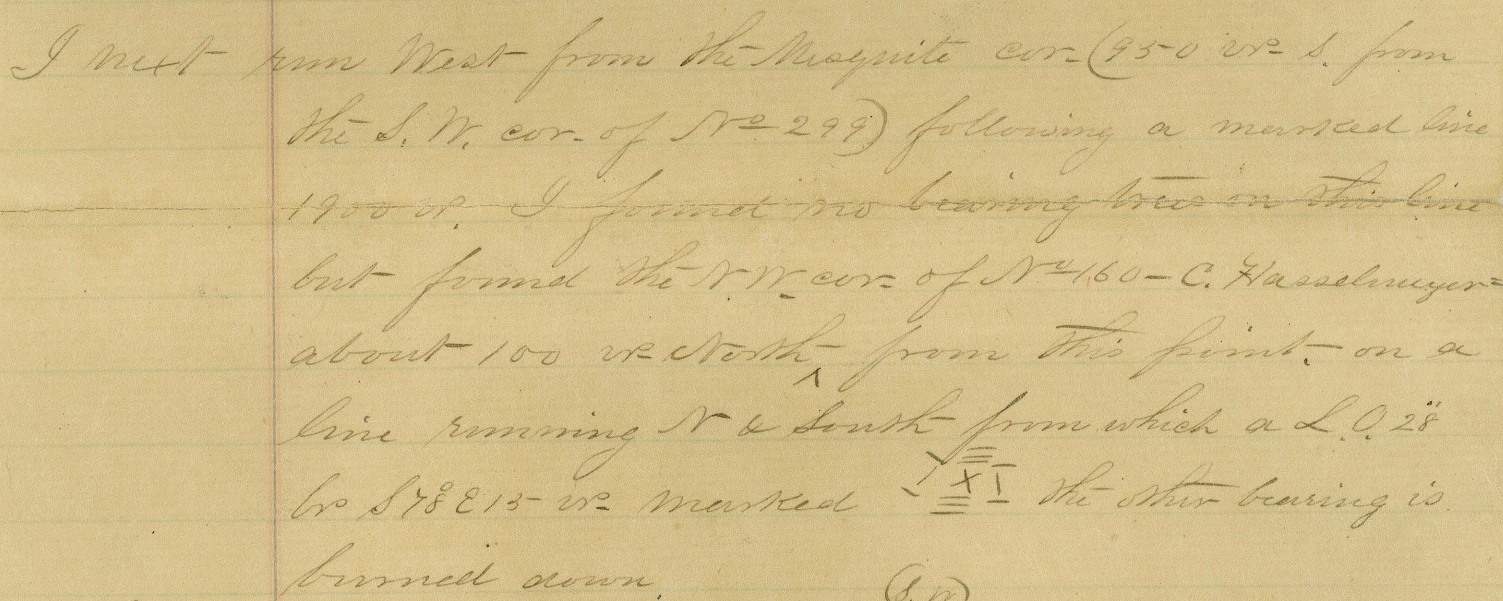 I next run West from the Mesquite cor. (950 vrs S. from
the S. W. cor. of No 299) following a marked line
1900 vrs. I found no bearing trees on this line
but found the N. W. cor. of No 160 – C. Hasselmeyer
about 100 vrs North from this point. on a
line running N & South from which a L. O. 28"
brs S 78° E 15 vrs marked the other bearing is
burned down.
(S. W)